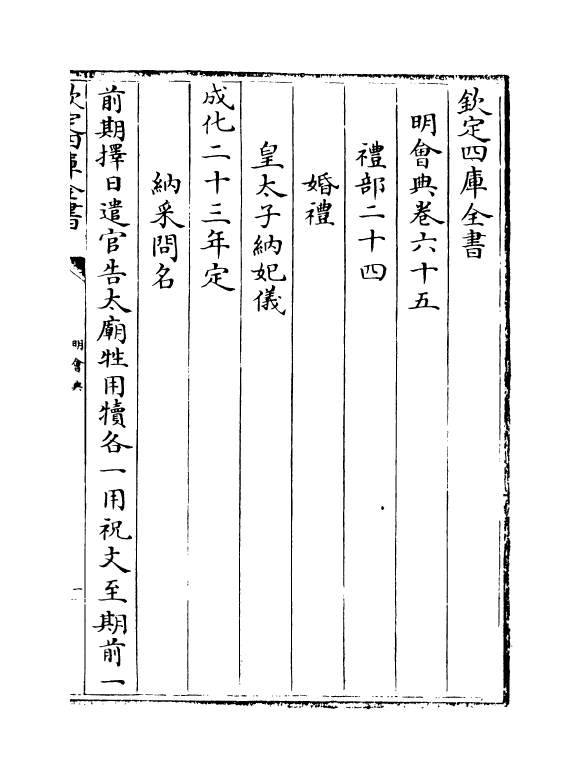 欽定四庫全書
明會典卷六十五
禮部二十四
婚禮
皇太子納妃儀
成化二十三年定
納采問名
前期擇日遣官告太廟牲用犢各一用祝文至期前一
欽定四庫全書
明會典
一